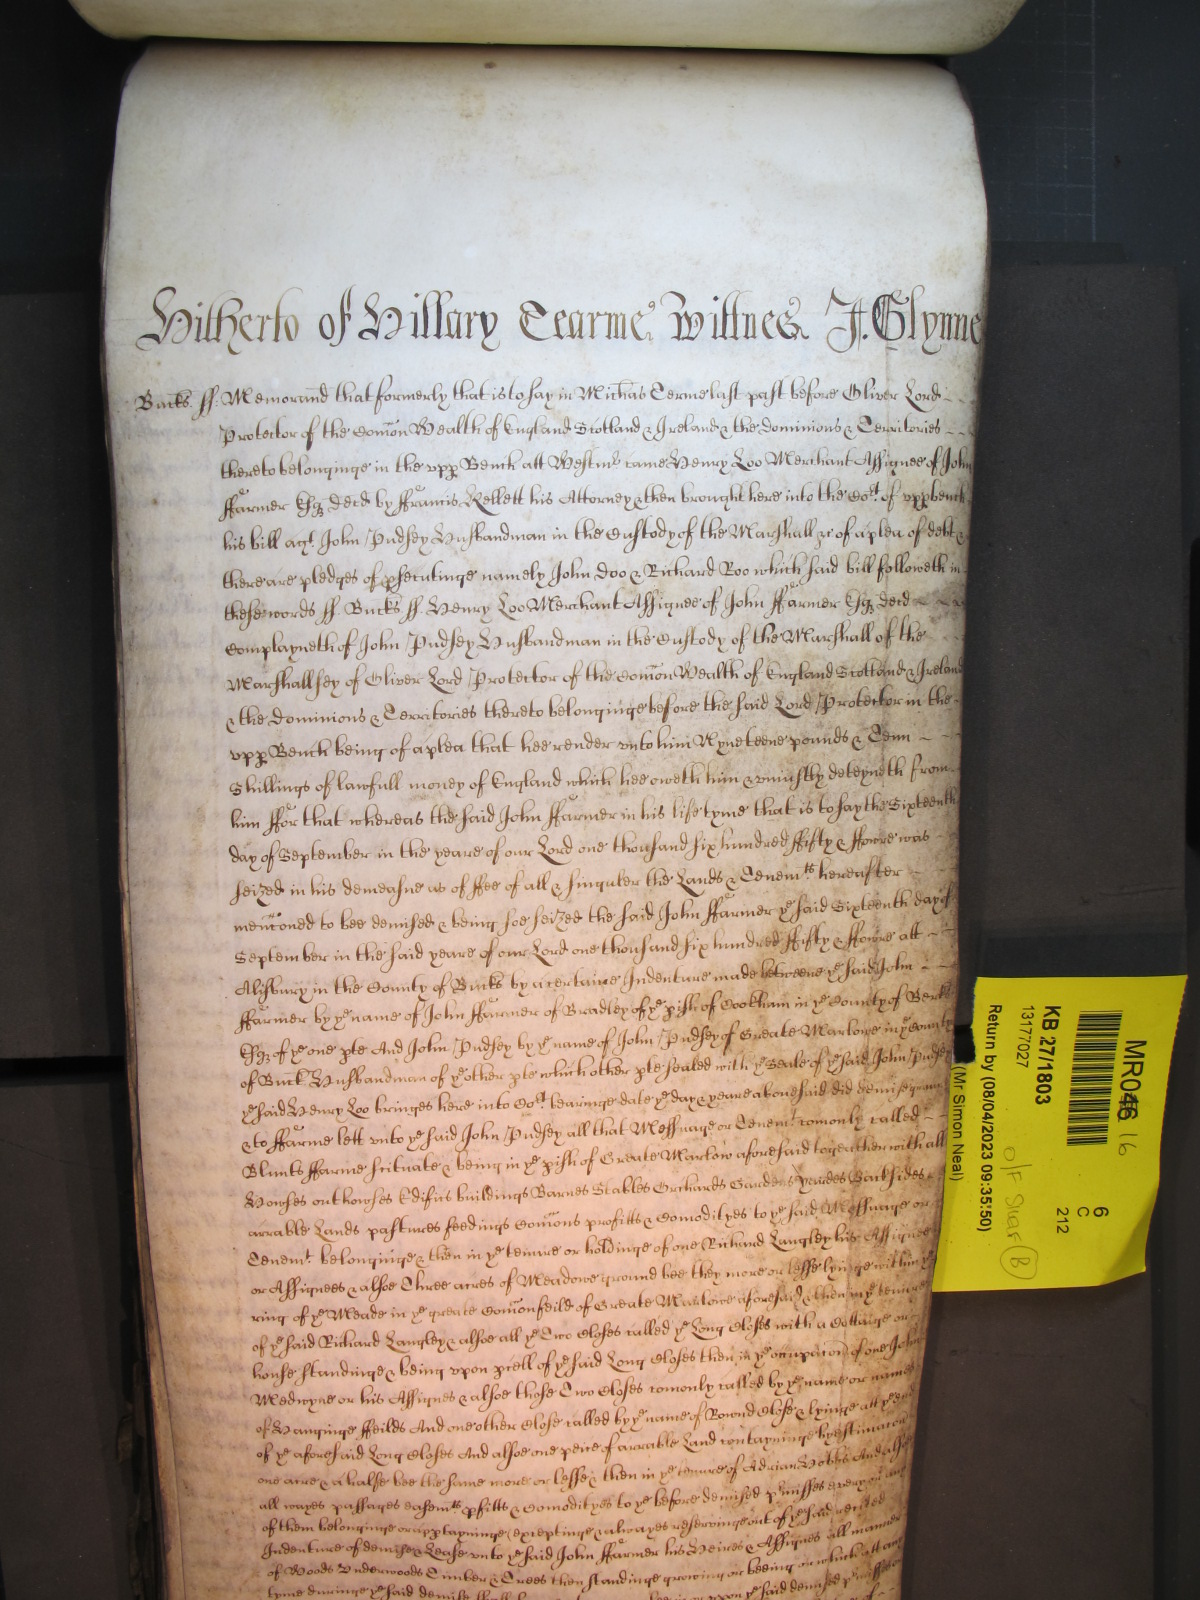 Hitherto of Hillary Tearme Wittnes J. Glynne
Bucks ss. Memorand that formerly that is to say in Michas Terme last past before Oliver Lord
Protector of the Comon Wealth of England Scotland & Ireland & the dominions & Territories
thereto belonginge in the upp Bench att Westmr came Henry Loo Merchant Assignee of John
ffarmer Esq decd by ffrancis Kellett his Attorney & then brought here into the Cort of upp bench
his bill agt John Pudsey Husbandman in the Custody of the Marshall &c of a plea of debt &
there are pledges of psecutinge namely John Doo & Richard Roo which said bill followeth in
these words ss Bucks ss Henry Loo Merchant Assignee of John ffarmer Esq decd
Complayneth of John Pudsey Husbandman in the Custody of the Marshall of the
Marshallsey of Oliver Lord Protector of the Comon Wealth of England Scotland & Ireland
& the Dominions & Territories thereto belonginge before the said Lord Protector in the
upp Bench being of a plea that hee render unto him Nyneteene pounds & Tenn
Shillings of lawfull money of England which hee oweth him & uniustly deteyneth from
him ffor that whereas the said John ffarmer in his life tyme that is to say the Sixteenth
day of September in the yeare of our Lord one thousand six hundred ffifty & ffowre was
seized in his demeasne as of ffee of all & singuler the Lands & Tenemts hereafter
mencioned to bee demised & being soe seized the said John ffarmer ye said Sixteenth day of
September in the said yeare of our Lord one thousand six hundred ffifty & ffowre att
Alisbury in the County of Bucks by a certaine Indenture made betweene ye said John
ffarmer by ye name of John ffarmer of Bradley of ye pish of Cookham in ye County of Berks
Esq of ye one pte And John Pudsey by ye name of John Pudsey of Greate Marlowe in ye County
of Buck Husbandman of ye other pte which other pte sealed with ye Seale of ye said John Pudsey
ye said Henry Loo bringes here into Cort bearinge date ye day & yeare abovesaid did demise graunt
& to ffarme lett unto ye said John Pudsey all that Messuage or Tenemt comonly called
Blunts ffarme scituate & being in ye pish of Greate Marlow aforesaid togeather with all
Howses outhowses Edifics buildings Barnes Stables Orchards Gardens yardes Backsides
arrable Lands pastures feedings Comons profitts & Comodityes to ye said Messuage or
Tenemt belonginge & then in ye tenure or holdinge of one Richard Langley his Assignee
or Assignees & alsoe Three acres of Meadowe ground bee they more or lesse lyinge within ye
ring of ye Meade in ye greate Comonfeild of Greate Marlowe aforesaid & then in ye tenure
of ye said Richard Langley & alsoe all ye Two Closes called ye Long Closes with a Cottage or
house standinge & being upon pcell of ye said Long Closes then in ye occupacon of one John
Medwyne or his Assignes & alsoe those Two Closes comonly called by ye name or names
of Hanginge ffeilds And one other Close called by ye name of Rownd Close & lyinge att ye end
of ye aforesaid Long Closes And alsoe one peice of arrable Land contayninge by estimacon
one acre & a halfe bee the same more or lesse & then in ye tenure of Adrian Hobbs And alsoe
all wayes passages easemts pfitts & Comodityes to ye before demised pmisses every or any
of them belonginge or apptayninge exceptinge & alwayes reservinge out of ye said recited
Indenture of demise & Lease unto ye said John ffarmer his Heires & Assignes all manner
of Woods Underwoods Timber & Trees then standinge growing or beeing or which att any
tyme duringe ye said demise upon ye said demised pmisses
MR046 16
6
C
212
KB 27/1803
13177027
O/F Shelf B
Return by (08/04/2023 09:35:50)
(Mr Simon Neal)